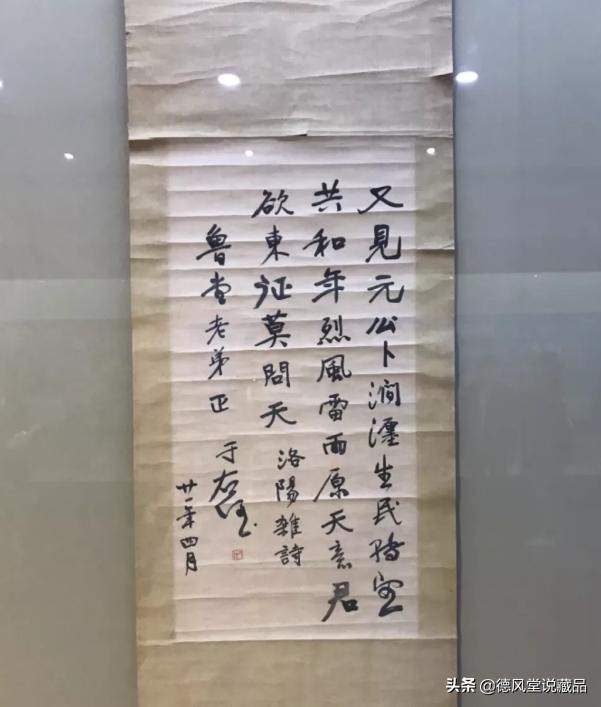 又見元公卜澗瀍生民
共和年烈風雷雨原天意君
欲東征莫問天
洛陽雜詩
魯堂老弟正
于右任
廿一年四月
头条 @德风堂说藏品